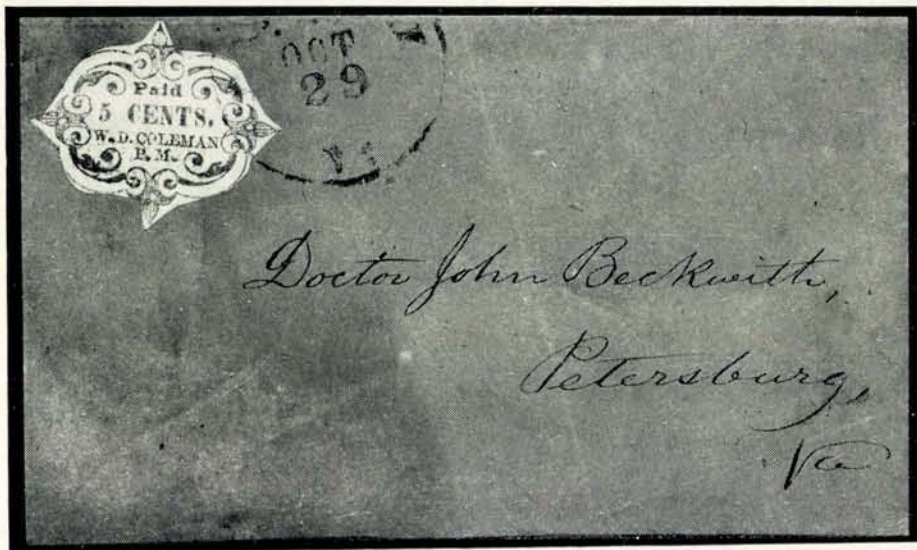 Paid
5 CENTS.
W. D. COLEMAN
P. M.
OCT
29
Doctor John Beckwith,
Petersburg,
Va